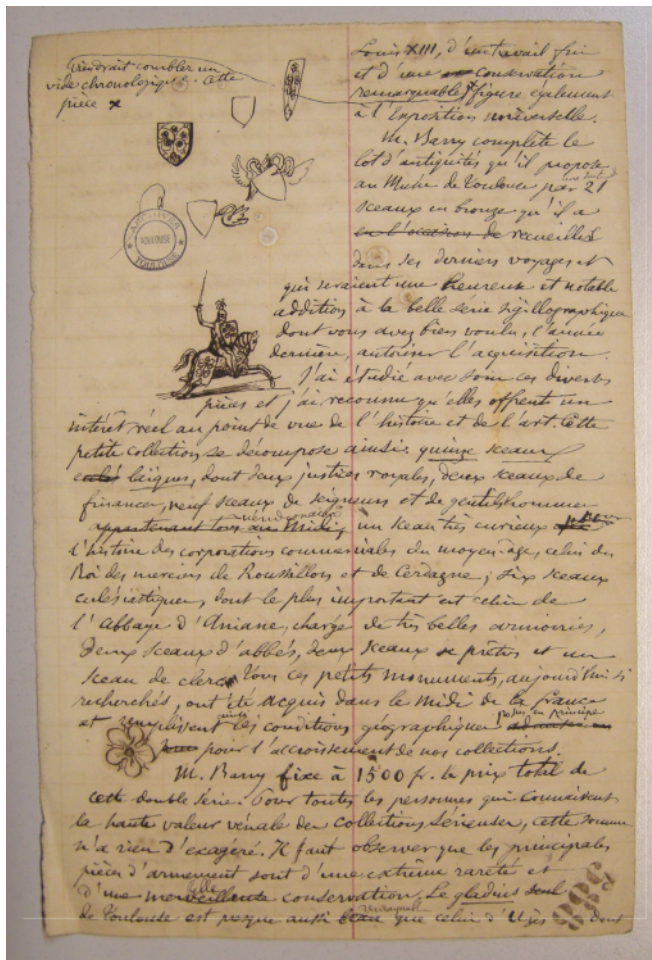 Louis XIII, d'un travail fin
viendrait combler un
et d'une conservation
vide chronologique. Cette
remarquable, figure également
pièce x
à l'Exposition universelle.
M. Barry complète le
lot d'antiquités qu'il propose
au Musée de Toulouse par 21
sceaux en bronze qu'il a
en l'occasion de recueillis
ARCHIVES
TOULOUSE
dans ses derniers voyages et
qui seraient une heureuse et notable
addition à la belle série sigillographique
dont vous avez bien voulu, l'année
dernière, autoriser l'acquisition.
J'ai étudié avec soin ces divers
pièces et j'ai reconnu qu'elles offrent un
intérêt réel au point de vue de l'histoire et de l'art. Cette
petite collection se décompose ainsi: quinze sceaux
laïques, dont deux justices royales, deux sceaux de
finances, neuf sceaux de seigneurs et de gentilshommes
méridionaux
appartenant tous au Midi, un sceau très curieux pour
l'histoire des corporations commerciales du moyen-âge, celui du
Roi des merciers de Roussillon et de Cerdagne; six sceaux
ecclésiastiques, dont le plus important est celui de
l'abbaye d'Aniane, chargé de très belles armoiries,
deux sceaux d'abbés, deux sceaux de prêtres et un
sceau de clerc. Tous ces petits monuments, aujourd'hui si
recherchés, ont été acquis dans le Midi de la France
et remplissent les conditions géographiques posées en principe
pour l'accroissement de nos collections.
M. Barry fixe à 1500 fr. le prix total de
cette double série. Pour toutes les personnes qui connaissent
la haute valeur vénale des collections sérieuses, cette somme
n'a rien d'exagéré. Il faut observer que les principales
pièces d'armement sont d'une extrême rareté et
d'une merveilleuse belle conservation. Le gladius seul
de Toulouse est presque aussi beau remarquable que celui d'Uzès dont